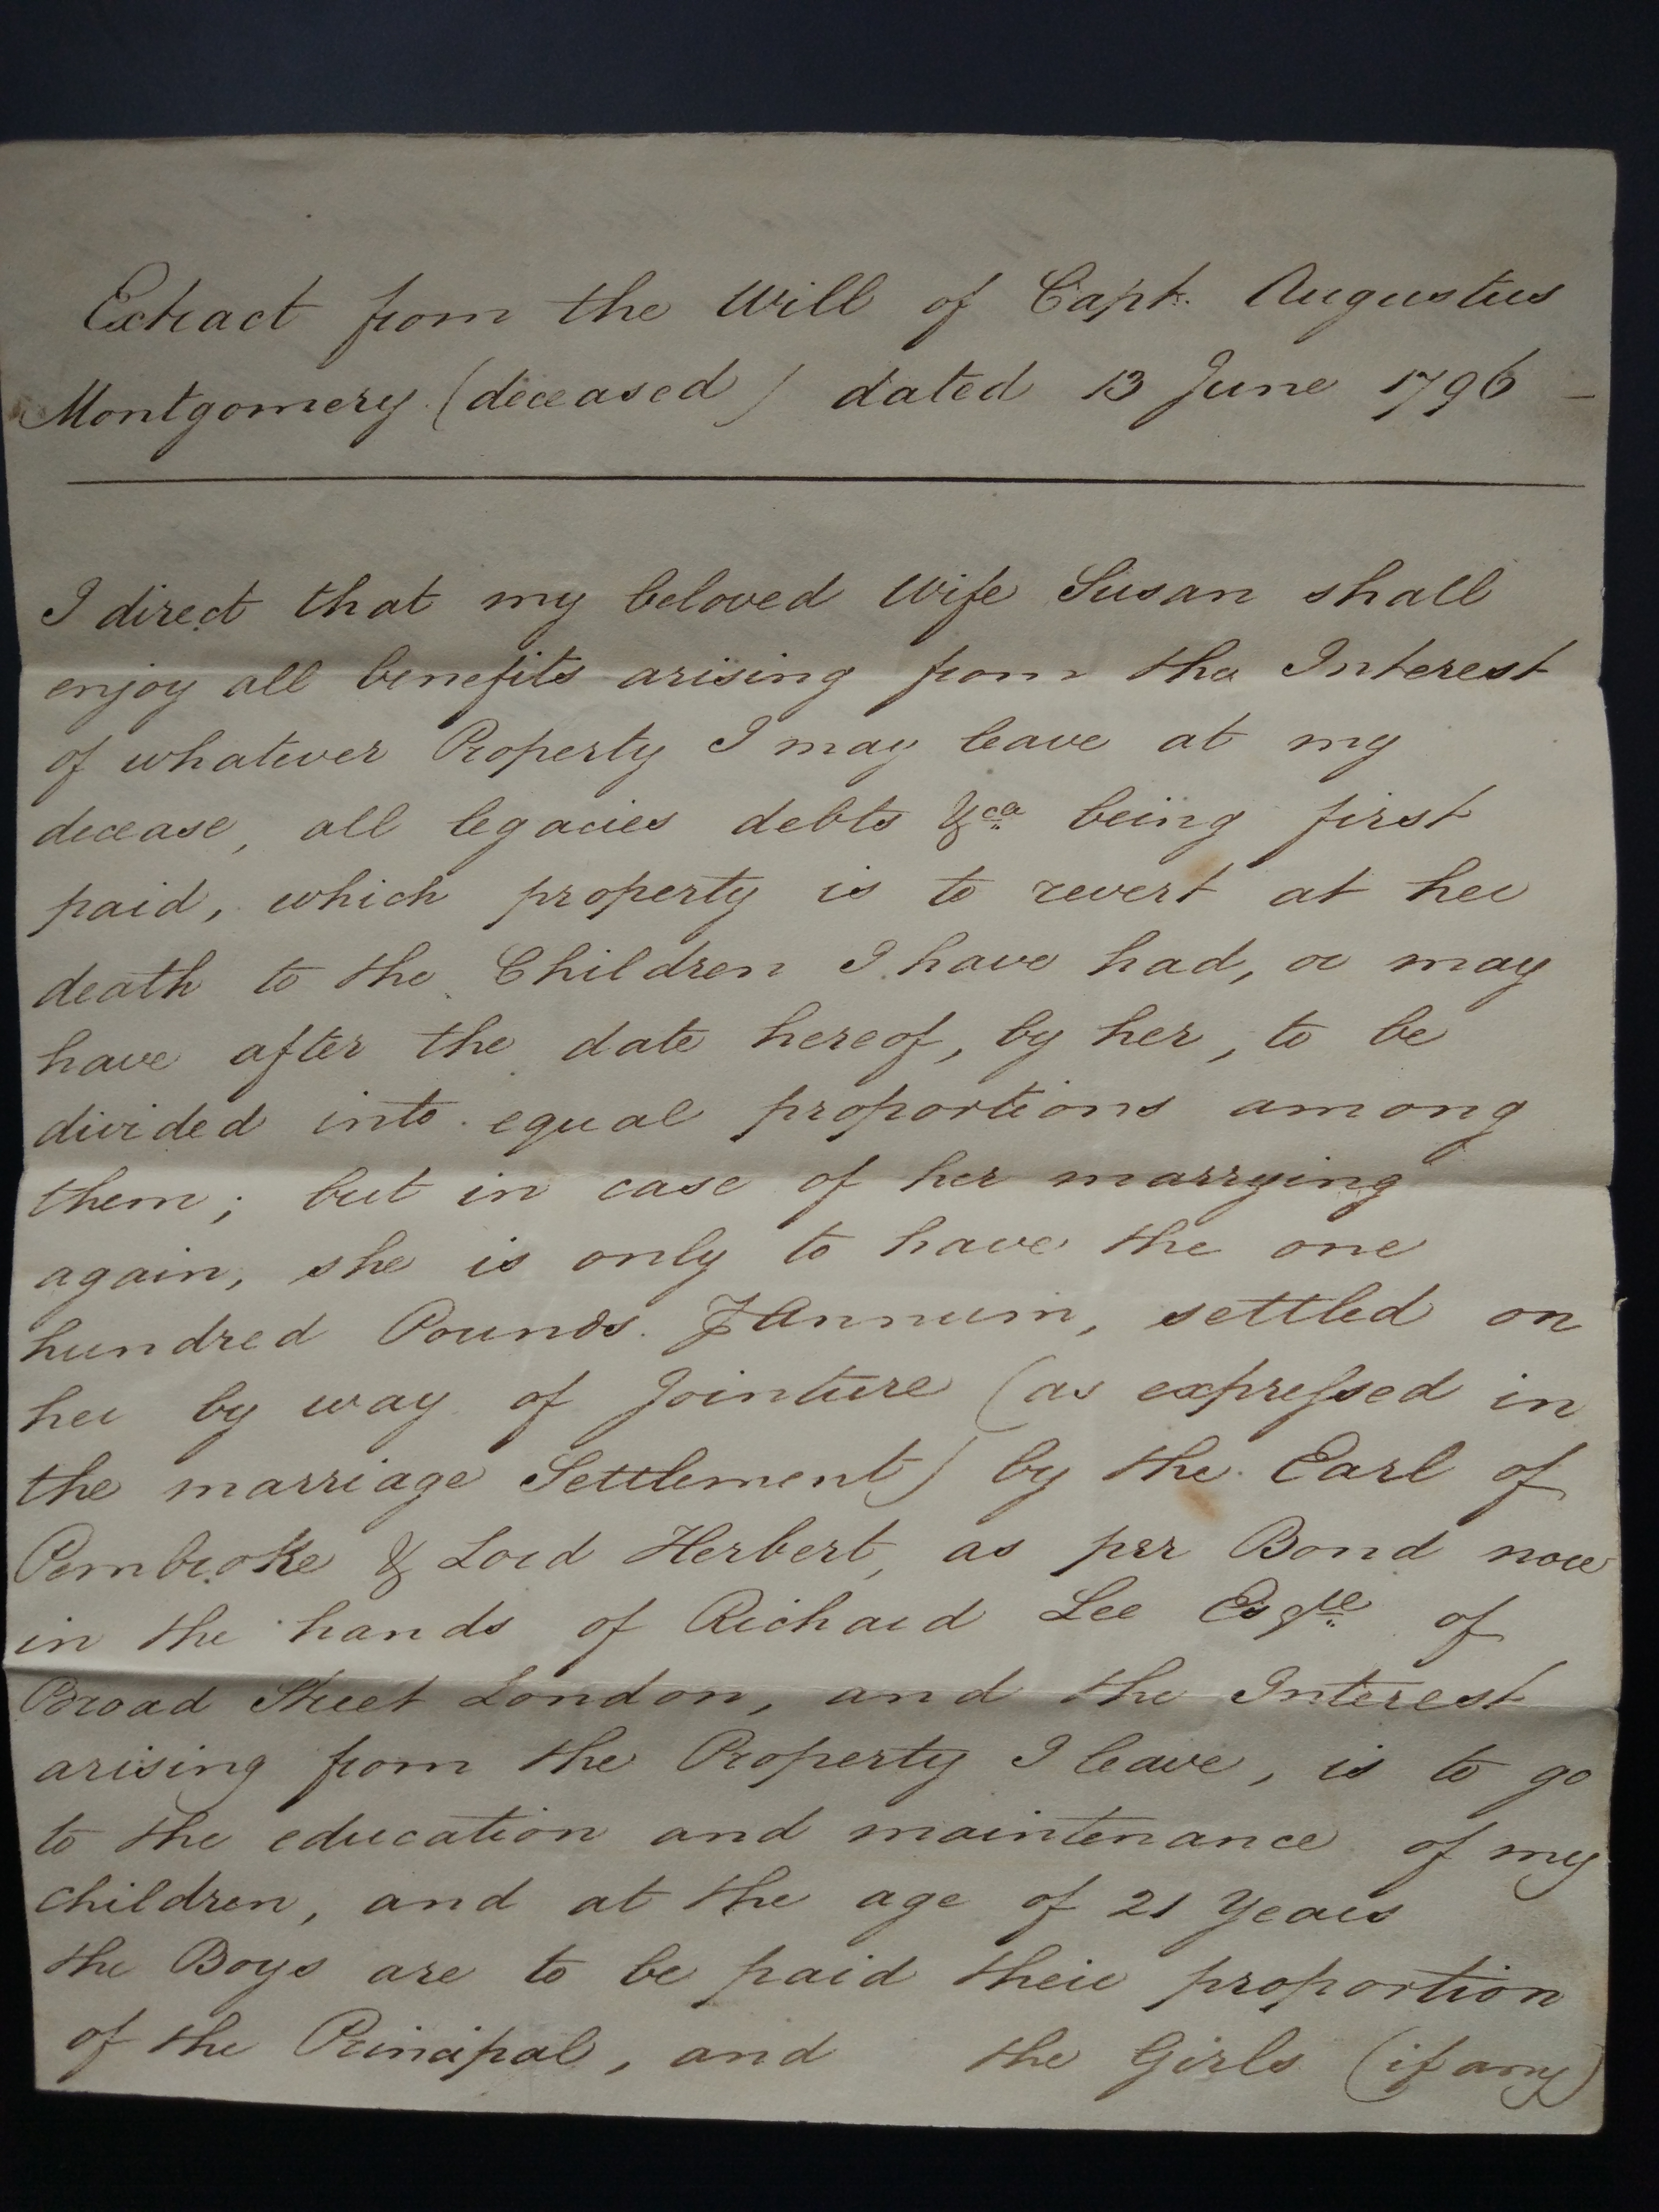 Extract from the Will of Capt. Augustus
Montgomery (deceased) dated 13 June 1796 –
I direct that my beloved Wife Susan shall
enjoy all benefits arising from the Interest
of whatever Property I may leave at my
decease, all legacies debts &ca being first
paid, which property is to revert at her
death to the Children I have had, or may
have after the date hereof, by her, to be
divided into equal proportions among
them; but in case of her marrying
again, she is only to have the one
hundred Pounds ⅌ Annum, settled on
her by way of Jointure (as expreſsed in
the marriage Settlement) by the Earl of
Pembroke & Lord Herbert, as per Bond now
in the hands of Richard Lee Esqre of
Broad Street London, and the Interest
arising from the Property I leave, is to go
to the education and maintenance of my
children, and at the age of 21 Years
the Boys are to be paid their proportion
of the Principal, and the Girls (if any)